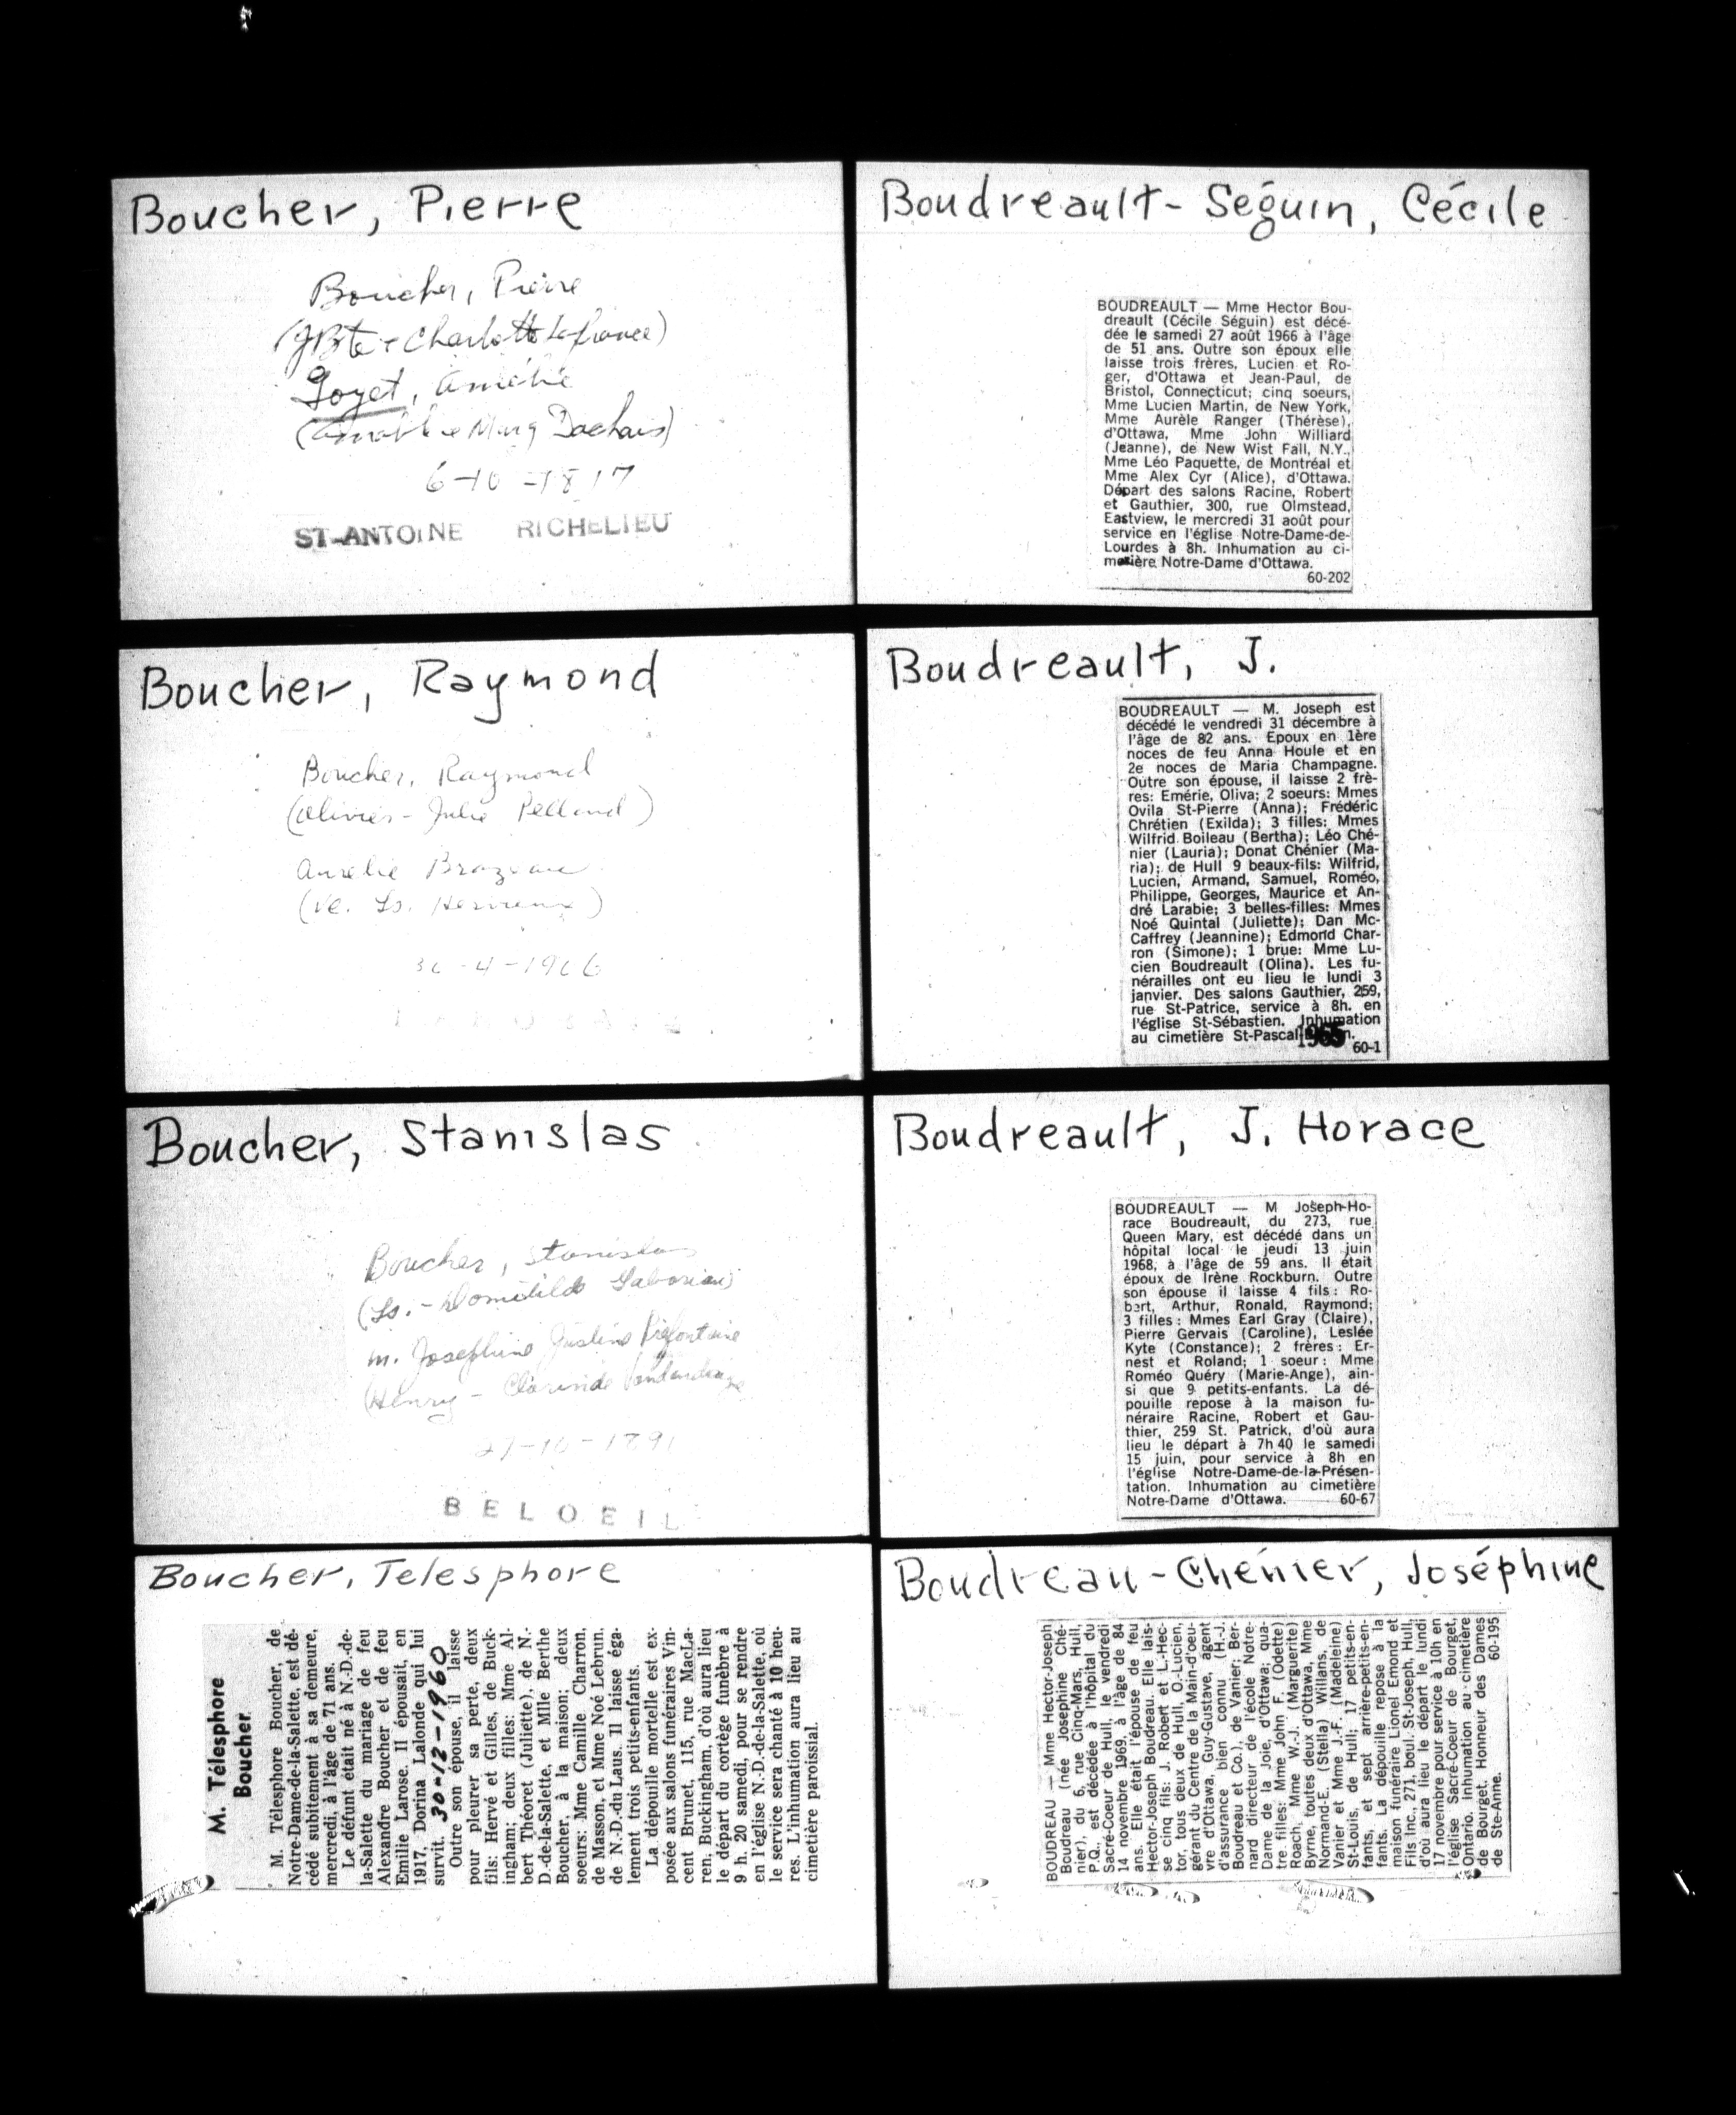 Boucher, Pierre
Boucher, Pierre
(JBte & Charlotte Lafrance)
Goyet, Amélie
(Amable & Marg Dachais)
6-10-1817
ST-ANTOINE RICHELIEU
Boucher, Raymond
Boucher, Raymond
(Olivier - Julie Pelland)
Aurelie Brazeau
(Ve. Ls.
-4-19
Boucher, Stanislas
Boucher, Stanislas
(Ls. - Domitilde
m. Josephine Justine Préfontaine
(Henry -
-10-1891
BELOEIL
Boucher, Telesphore
M. Télesphore
Boucher
M. Télesphore Boucher, de
Notre-Dame-de-la-Salette, est dé-
cédé subitement à sa demeure,
mercredi, à l'âge de 71 ans.
Le défunt était né à N.-D.-de-
la-Salette du mariage de feu
Alexandre Boucher et de feu
Emilie Larose. Il épousait, en
1917, Dorina Lalonde qui lui
survit. 30-12-1960
Outre son épouse, il laisse
pour pleurer sa perte, deux
fils: Hervé et Gilles, de Buck-
ingham; deux filles: Mme Al-
bert Théoret (Juliette), de N.-
D.-de-la-Salette, et Mlle Berthe
Boucher, à la maison; deux
soeurs: Mme Camille Charron,
de Masson, et Mme Noé Lebrun,
de N.-D.-du Laus. Il laisse éga-
lement trois petits-enfants.
La dépouille mortelle est ex-
posée aux salons funéraires Vin-
cent Brunet, 115, rue MacLa-
ren, Buckingham, d'où aura lieu
le départ du cortège funèbre à
9 h. 20 samedi, pour se rendre
en l'église N.-D.-de-la-Salette, où
le service sera chanté à 10 heu-
res. L'inhumation aura lieu au
cimetière paroissial.
Boudreault-Séguin, Cécile
BOUDREAULT — Mme Hector Bou-
dreault (Cécile Séguin) est décé-
dée le samedi 27 août 1966 à l'âge
de 51 ans. Outre son époux elle
laisse trois frères, Lucien et Ro-
ger, d'Ottawa et Jean-Paul, de
Bristol, Connecticut; cinq soeurs,
Mme Lucien Martin, de New York,
Mme Aurèle Ranger (Thérèse),
d'Ottawa, Mme John Williard
(Jeanne), de New Wist Fall, N.Y.,
Mme Léo Paquette, de Montréal et
Mme Alex Cyr (Alice), d'Ottawa.
Départ des salons Racine, Robert
et Gauthier, 300, rue Olmstead,
Eastview, le mercredi 31 août pour
service en l'église Notre-Dame-de-
Lourdes à 8h. Inhumation au ci-
metière Notre-Dame d'Ottawa.
60-202
Boudreault, J.
BOUDREAULT — M. Joseph est
décédé le vendredi 31 décembre à
l'âge de 82 ans. Epoux en 1ère
noces de feu Anna Houle et en
2e noces de Maria Champagne.
Outre son épouse, il laisse 2 frè-
res: Emérie, Oliva; 2 soeurs: Mmes
Ovila St-Pierre (Anna); Frédéric
Chrétien (Exilda); 3 filles: Mmes
Wilfrid Boileau (Bertha); Léo Ché-
nier (Lauria); Donat Chénier (Ma-
ria); de Hull 9 beaux-fils: Wilfrid,
Lucien, Armand, Samuel, Roméo,
Philippe, Georges, Maurice et An-
dré Larabie; 3 belles-filles: Mmes
Noé Quintal (Juliette); Dan Mc-
Caffrey (Jeannine); Edmond Char-
ron (Simone); 1 brue: Mme Lu-
cien Boudreault (Olina). Les fu-
nérailles ont eu lieu le lundi 3
janvier. Des salons Gauthier, 259,
rue St-Patrice, service à 8h. en
l'église St-Sébastien. Inhumation
au cimetière St-Pascal
1965
60-1
Boudreault, J. Horace
BOUDREAULT — M Joseph-Ho-
race Boudreault, du 273, rue
Queen Mary, est décédé dans un
hôpital local le jeudi 13 juin
1968, à l'âge de 59 ans. Il était
époux de Irène Rockburn. Outre
son épouse il laisse 4 fils: Ro-
bert, Arthur, Ronald, Raymond;
3 filles: Mmes Earl Gray (Claire),
Pierre Gervais (Caroline), Leslée
Kyte (Constance); 2 frères: Er-
nest et Roland; 1 soeur: Mme
Roméo Quéry (Marie-Ange), ain-
si que 9 petits-enfants. La dé-
pouille repose à la maison fu-
néraire Racine, Robert et Gau-
thier, 259 St. Patrick, d'où aura
lieu le départ à 7h 40 le samedi
15 juin, pour service à 8h en
l'église Notre-Dame-de-la-Présen-
tation. Inhumation au cimetière
Notre-Dame d'Ottawa. 60-67
Boudreau-Chénier, Joséphine
BOUDREAU — Mme Hector-Joseph
Boudreau (née Josephine Ché-
nier), du 6, rue Cinq-Mars, Hull,
P.Q., est décédée à l'hôpital du
Sacré-Coeur de Hull, le vendredi
14 novembre 1969, à l'âge de 84
ans. Elle était l'épouse de feu
Hector-Joseph Boudreau. Elle lais-
se cinq fils: J. Robert et L.-Hec-
tor, tous deux de Hull, O.-Lucien,
gérant du Centre de la Main-d'oeu-
vre d'Ottawa, Guy-Gustave, agent
d'assurance bien connu (H.-J.
Boudreau et Co.), de Vanier; Ber-
nard directeur de l'école Notre-
Dame de la Joie, d'Ottawa; qua-
tre filles: Mme John F. (Odette)
Roach, Mme W.-J. (Marguerite)
Byrne, toutes deux d'Ottawa, Mme
Normand-E. (Stella) Willans, de
Vanier et Mme J.-F. (Madeleine)
St-Louis, de Hull; 17 petits-en-
fants, et sept arrière-petits-en-
fants. La dépouille repose à la
maison funéraire Lionel Emond et
Fils Inc, 271, boul. St-Joseph, Hull,
d'où aura lieu le départ le lundi
17 novembre pour service à 10h en
l'église Sacré-Coeur de Bourget,
Ontario. Inhumation au cimetière
de Bourget. Honneur des Dames
de Ste-Anne. 60-195